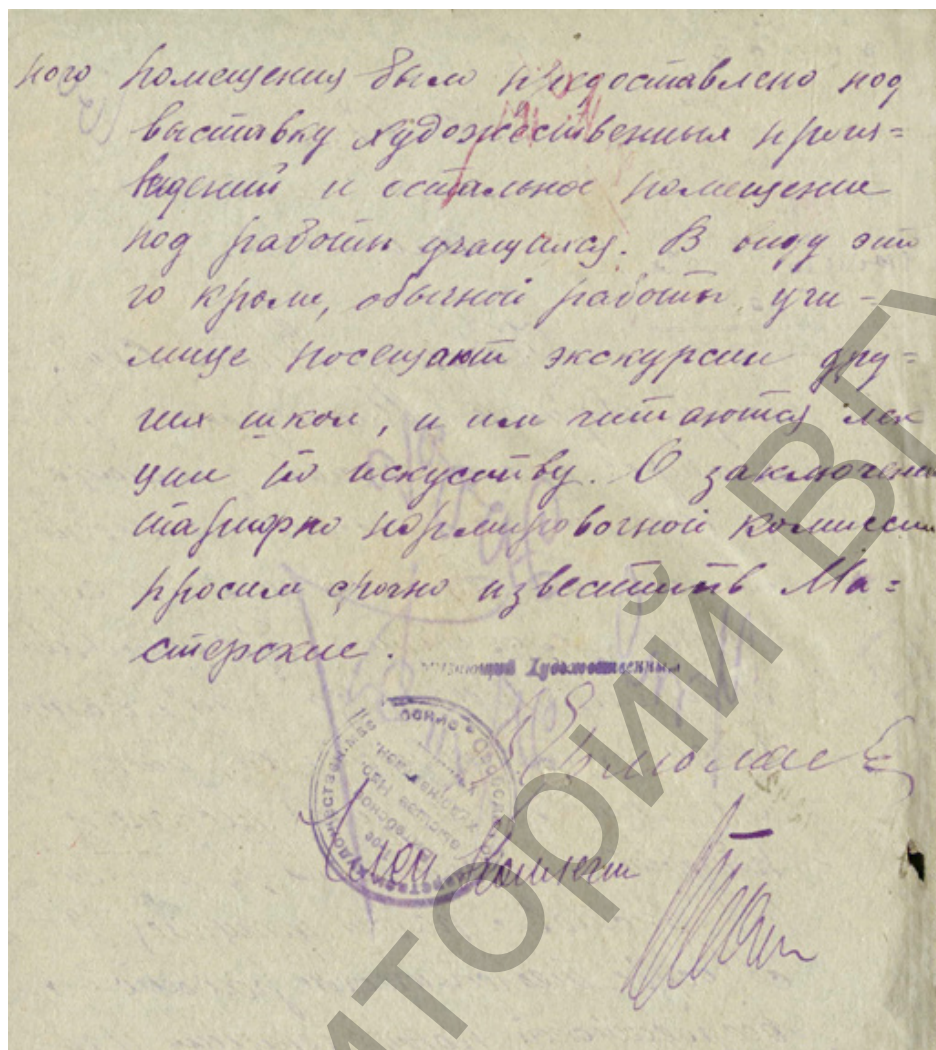 ного помещения было предоставлено под
выставку художественных произ=
ведений и остальное помещение
под работы учащихся. В виду это
го кроме, обычной работы, учи-
лище посещают экскурсии дру=
гих школ, и им читаются лек
ции по искусству. О заключении
тарифно нормировочной комиссии
просим срочно известить Ма=
стерские.
Художественными
Член Коллегии